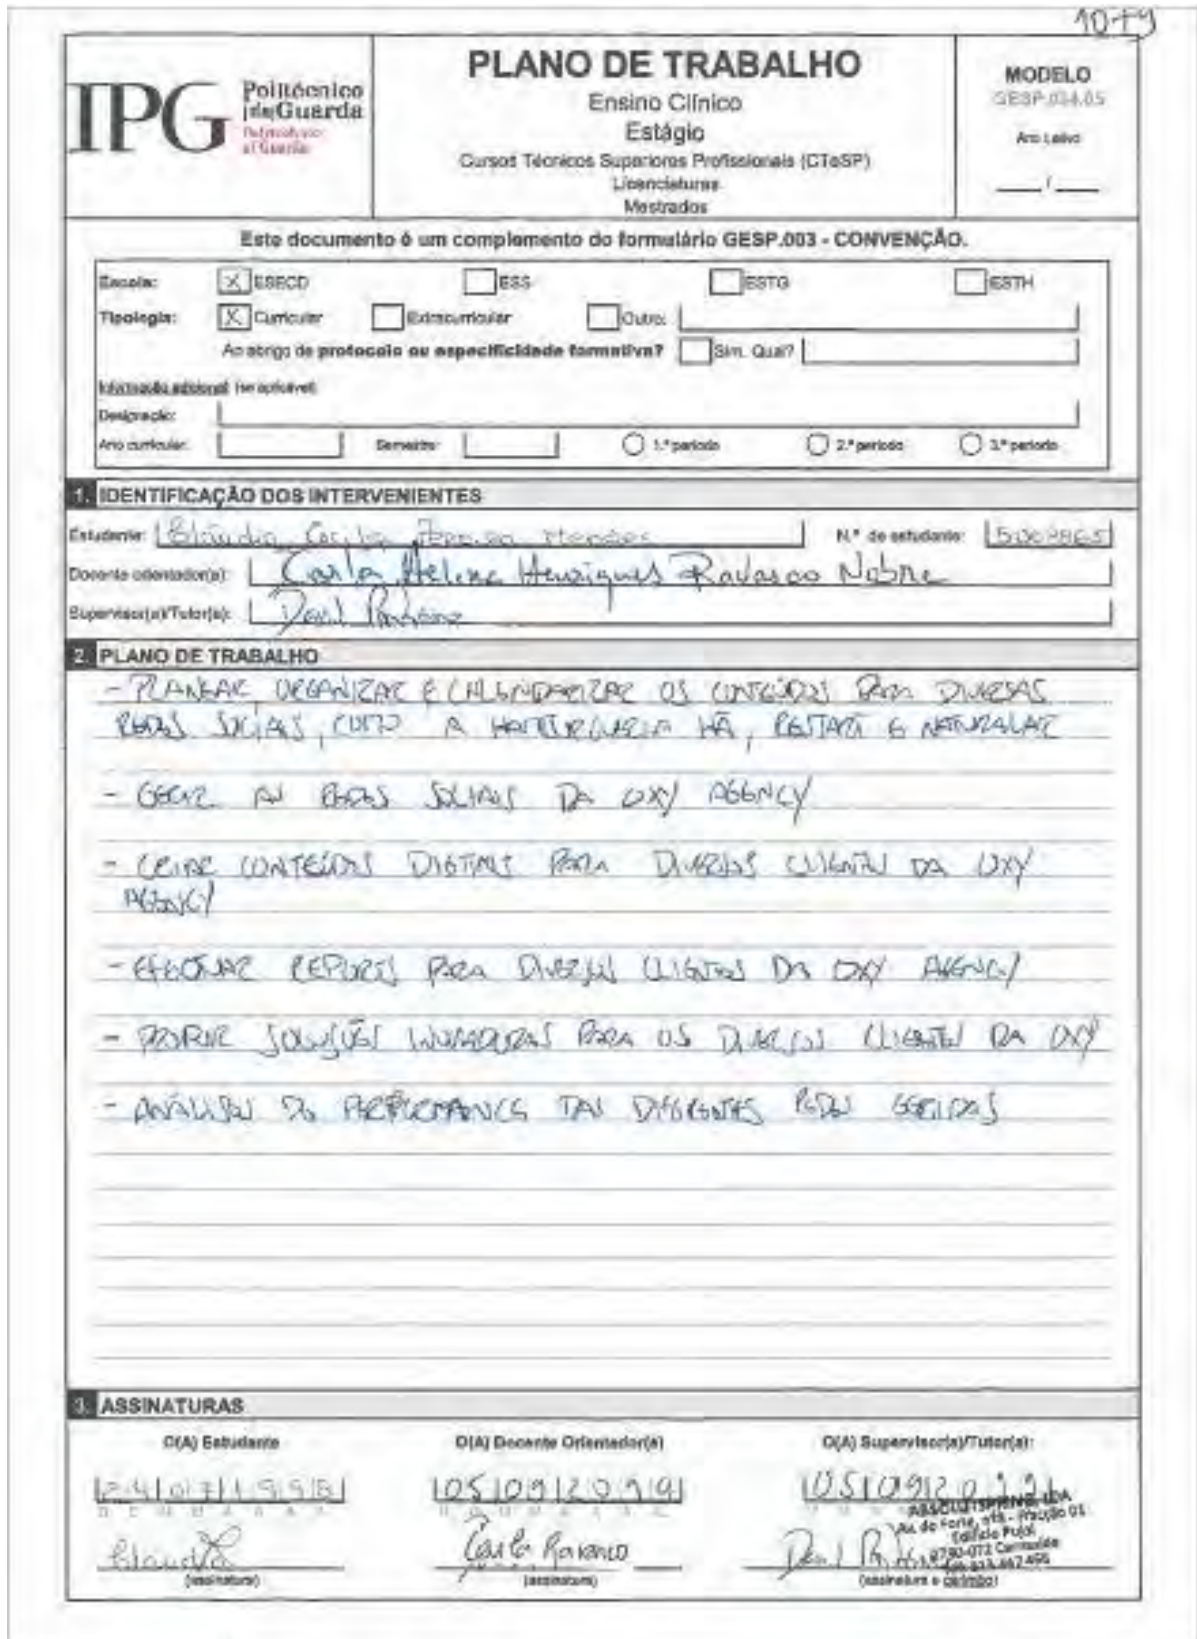 10+9
IPG
Politécnico
da Guarda
Polytechnic
of Guarda
PLANO DE TRABALHO
Ensino Clínico
Estágio
Cursos Técnicos Superiores Profissionais (CTeSP)
Licenciaturas
Mestrados
MODELO
GESP.034.05
Ano Letivo
___/___
Este documento é um complemento do formulário GESP.003 - CONVENÇÃO.
Escola: X ESECD ESS ESTG ESTH
Tipologia: X Curricular Extracurricular Outro:
Ao abrigo de protocolo ou especificidade formativa? Sim. Qual?
Informação adicional (se aplicável)
Designação:
Ano curricular: Semestre: 1.º período 2.º período 3.º período
1. IDENTIFICAÇÃO DOS INTERVENIENTES
Estudante: Cláudia Mendes N.º de estudante:
Docente orientador(a): Carla Helena Henriques Ravasco Nobre
Supervisor(a)/Tutor(a):
2. PLANO DE TRABALHO
- PLANEAR, ORGANIZAR E CALENDARIZAR OS CONTEÚDOS PARA DIVERSAS
REDES SOCIAIS, COMO A HAMBURGUERIA HÃ, E
- GERIR AS REDES SOCIAIS DA OXY AGENCY
- CRIAR CONTEÚDOS DIGITAIS PARA DIVERSOS CLIENTES DA OXY
AGENCY
- EFECTUAR REPORTS PARA DIVERSOS CLIENTES DA OXY AGENCY
- PROPOR SOLUÇÕES INOVADORAS PARA OS DIVERSOS CLIENTES DA OXY
- ANÁLISES DO PERFORMANCE DAS DIFERENTES REDES GERIDAS
3. ASSINATURAS
O(A) Estudante O(A) Docente Orientador(a) O(A) Supervisor(a)/Tutor(a):
24 07 1998 05 09 2019 05 09 2019
Cláudia Carla Ravasco
(assinatura) (assinatura) (assinatura e carimbo)
Av. do Forte, - Fracção 01
Edifício
Carnaxide